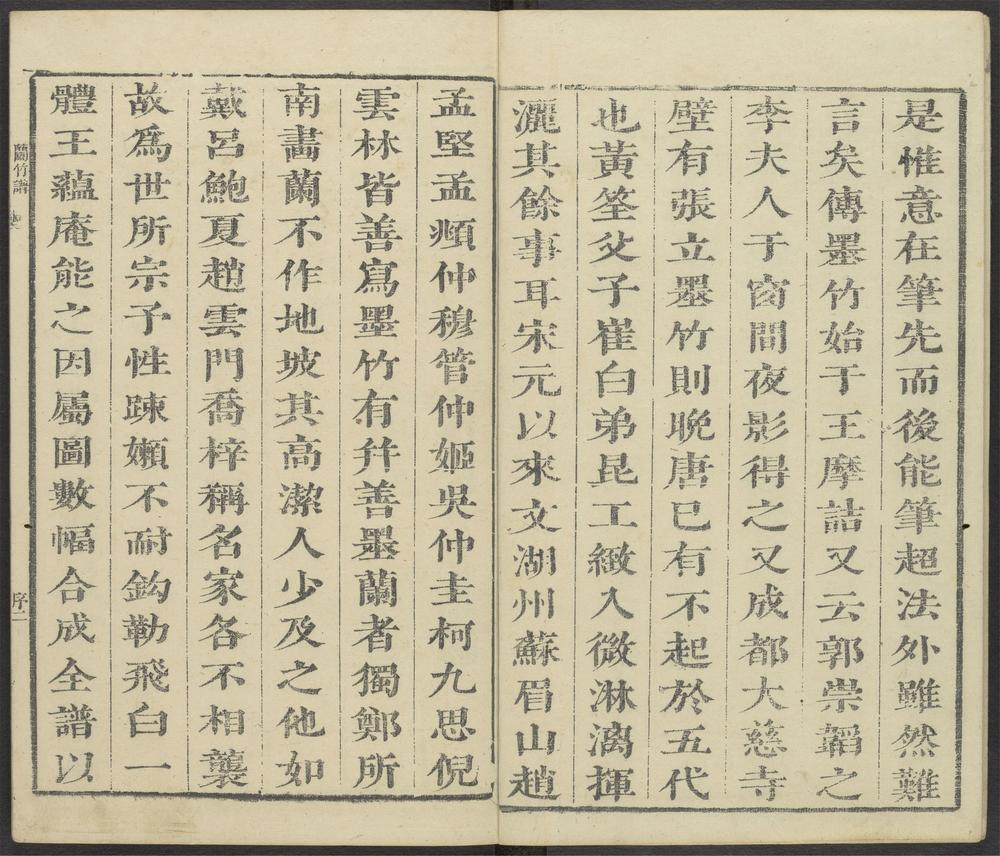 是惟意在筆先而後能筆超法外雖然難
言矣傳墨竹始于王摩詰又云郭崇韜之
李夫人于窗間夜影得之又成都大慈寺
壁有張立墨竹則晚唐已有不起於五代
也黃筌父子崔白弟昆工緻入微淋漓揮
灑其餘事耳宋元以來文湖州蘇眉山趙
孟堅孟頫仲穆管仲姬吳仲圭柯九思倪
雲林皆善寫墨竹有幷善墨蘭者獨鄭所
南畫蘭不作地坡其高潔人少及之他如
戴呂鮑夏趙雲門喬梓稱名家各不相襲
故爲世所宗予性踈嬾不耐鈎勒飛白一
體王蘊庵能之因屬圖數幅合成全譜以
蘭竹譜
序二